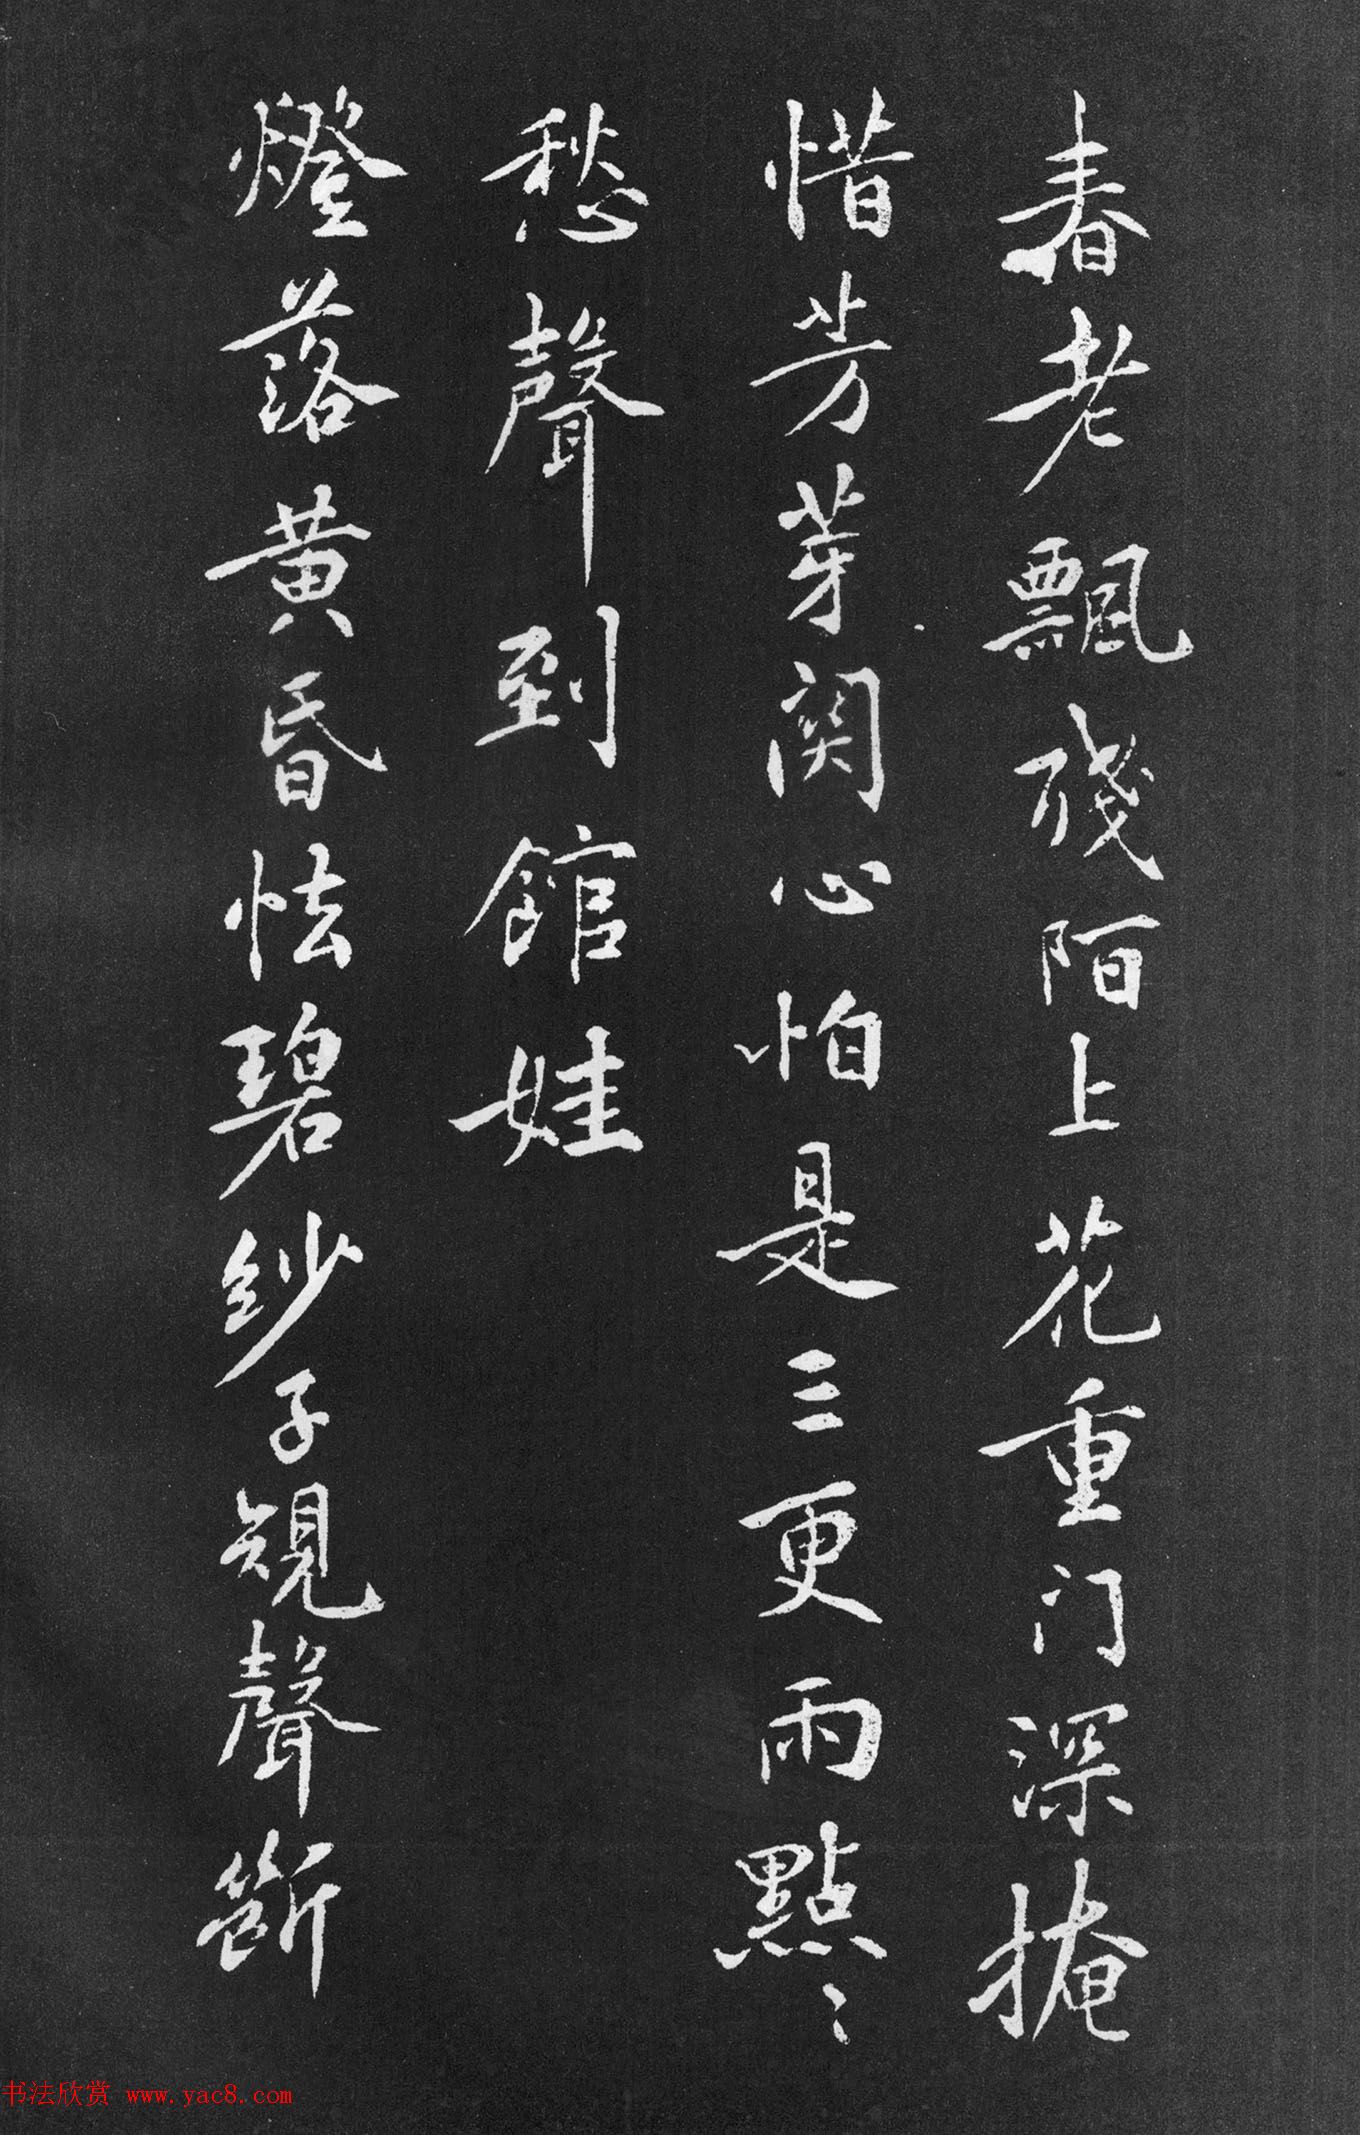 春老飄殘陌上花重门深掩
惜芳芽関心怕是三更雨點〻
愁聲到館娃
燈落黄昏怯碧紗子規聲斷
书法欣赏 www.yac8.com